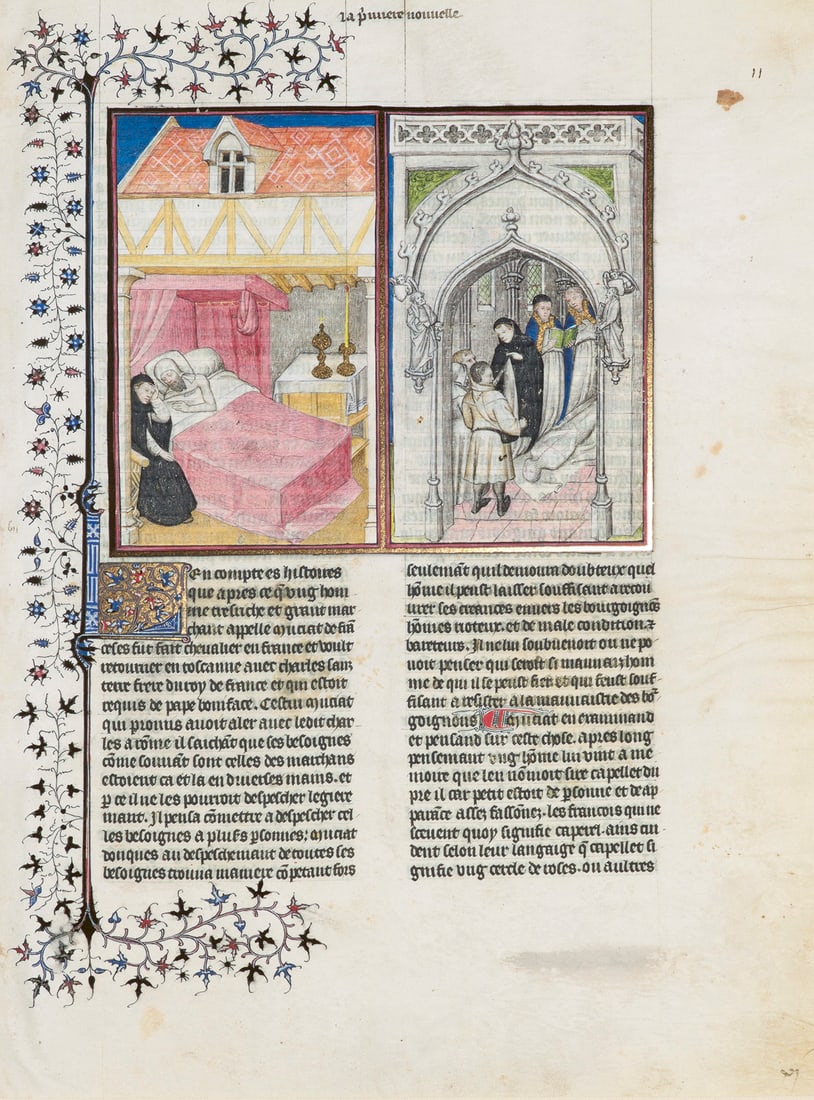 la pr̄miere nouvelle
11
En comptes histoires
que apres ce q̄ ung hom
me tresriche et grant mar
chant appelle Musciat de frā
ceses fut fait chevalier en france et voult
retourner en toscanne avec charles sanz
terre frere du roy de france et qui estoit
requis de pape boniface. Cestui musciat
qui promis avoit aler avec ledit char
les a rōme il saichāt que ses besoignes
cōme souvāt sont celles des marchans
estoient ca et la en diverses mains. et
p ce il ne les pourroit despescher legiere
mant. Il pensa cōmettre a despescher cel
les besoignes a plusrs p̄sonnes: musciat
donques au despeschemant de toutes ses
besoignes trouva maniere cōpetant fors
seulemāt quil demoura doubteux quel
hōme il peust laisser souffisant a recou
urer ses creances envers les bourgoignōs
hōmes rioteux. et de male condition. et
bareteurs. Il ne lui souvenoit ou ne po
voit penser qui seroit si mauvaiz hom
me de qui il se peust fier et qui feust souf
fisant a resister a la mauvaistie des bor
goignons. Musciat en examinand
et pensand sur ceste chose. apres long
pensemant ung hōme lui vint a me
moire que len nōmoit sire capellet du
pre il car petit estoit de p̄sonne et de ap
parāce assez fassōnez. les francois qui ne
scevent quoy signifie capexel. ains cui
dent selon leur langaige q̄ capellet si
gnifie ung cercle de roses. ou aultres